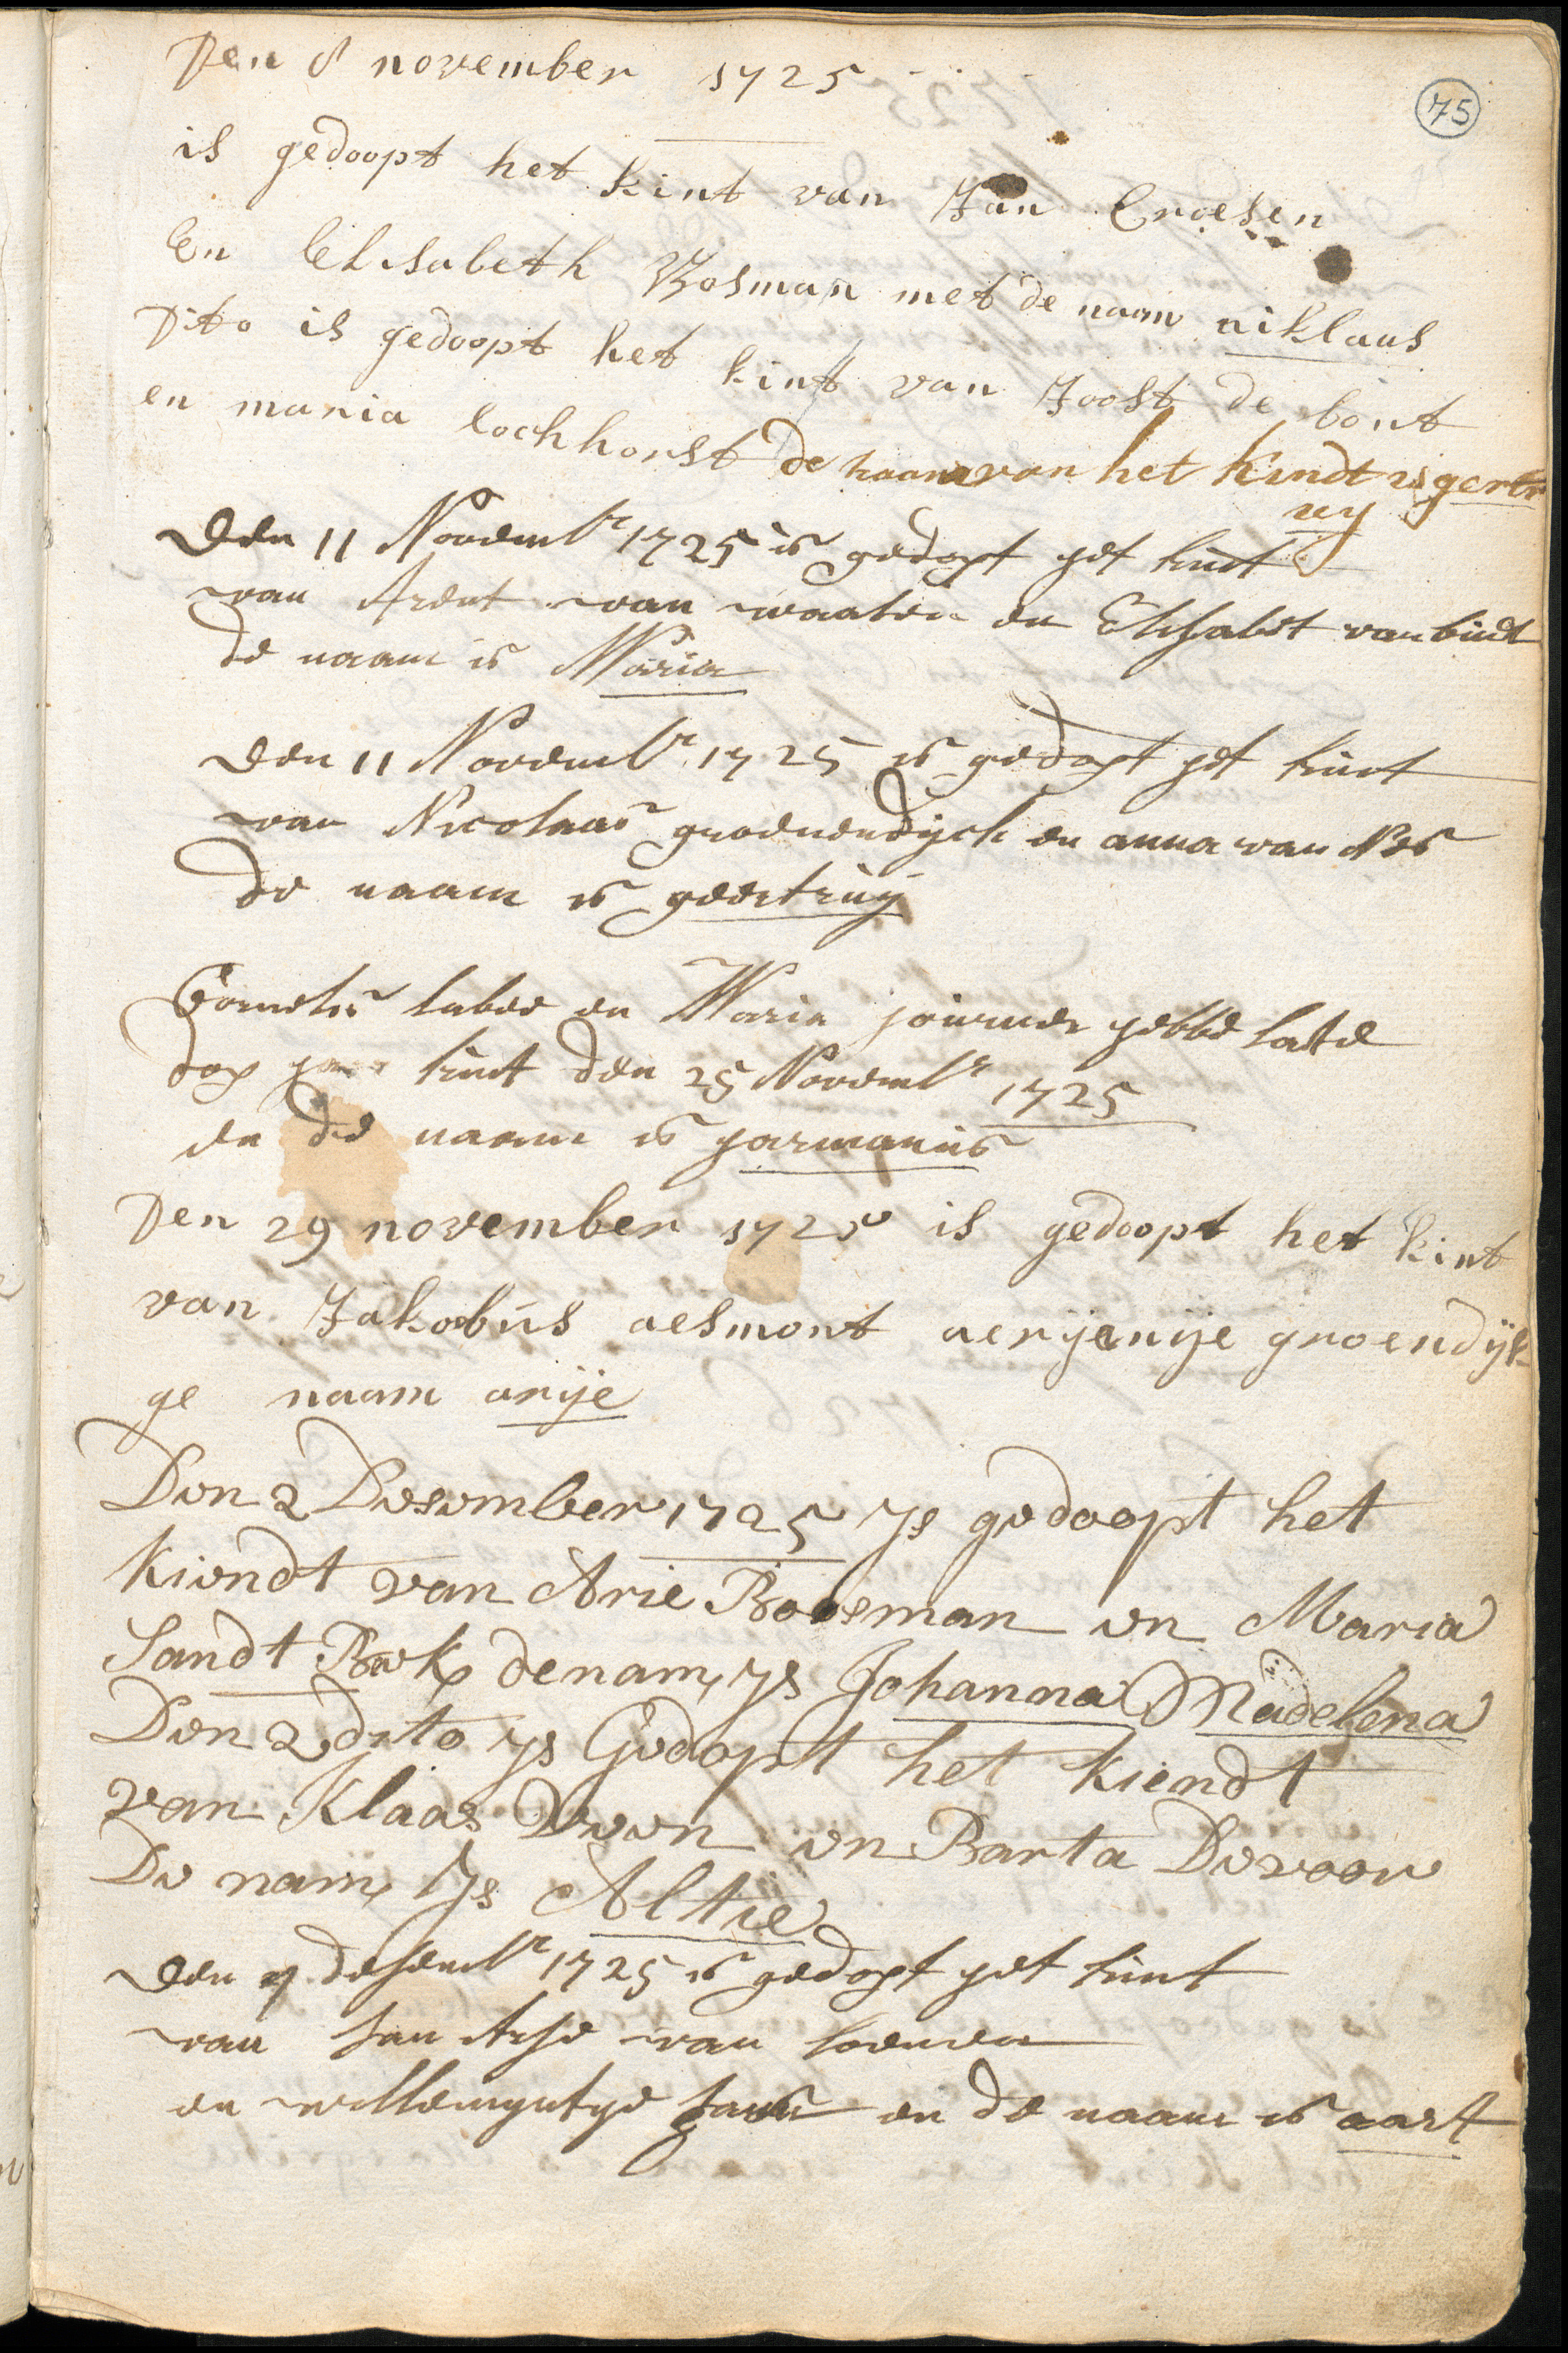 75
Den 8 november 1725
is gedoopt het kint van Jan Croesen
En Elisabeth Bosman met de naam niklaus
Dito is gedoopt het kint van Joost de bont
en maria lochhorst de naam van het kindt is gertr
uy
Den 11 Novembr 1725 is gedopt het kint
van Arent van waaten en Elisabet van bindt
de naam is Maria
Den 11 Novembr 1725 is gedopt het kint
van Nicolaas groenendijck en anna van Nes
de naam is geertruij
Cornelis labee en Maria hebbe late
dop haer kint den 25 Novembr 1725
en de naam is harmanus
Den 29 november 1725 is gedoopt het kint
van Jakobus aesmont aerijenije groendijk
ge naam arije
Den 2 Desember 1725 Is gedoopt het
kiendt van Arie Booseman en Maria
Sandt Bek de nam ys Johanna Madelena
Den 2 dito ys Gedopt het kiendt
van Klaas Veen en Barta Devoor
De nam Is Altie
Den 9 desembr 1725 is gedopt het kint
van Jan Arse van loenen
en willemyntye Jans en de naam is aart